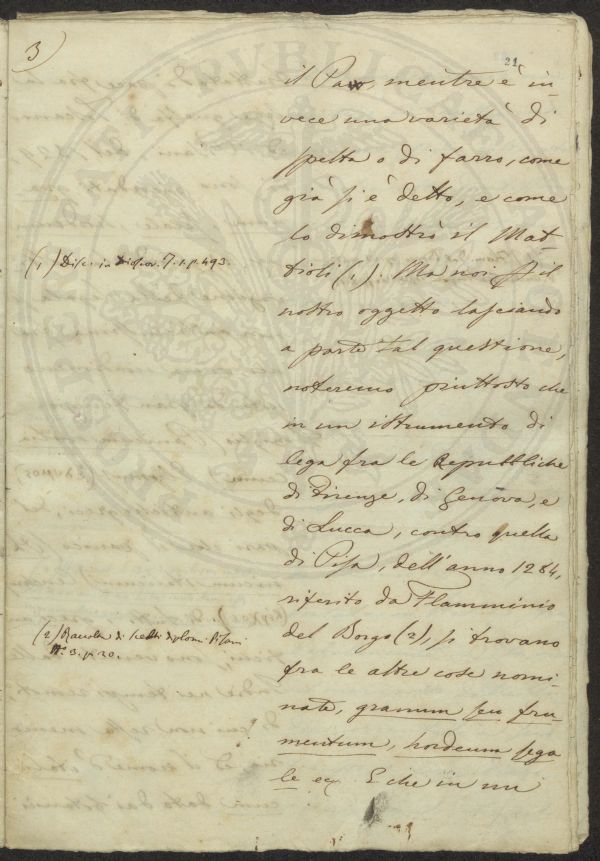 3)
21
il Paso, mentre è in-
vece una varietà di
spelta o di farro, come
già si è detto, e come
lo dimostrò il Mat-
tioli (1). Ma noi il
nostro oggetto lasciando
a parte tal questione,
noteremo piuttosto che
in un istrumento di
lega fra le Repubbliche
di Firenze, di Genova, e
di Lucca, contro quella
di Pisa, dell'anno 1284,
riferito da Flamminio
del Borgo (2), si trovano
fra le altre cose nomi-
nate, granum seu fru
mentum, hordeum sega
le ec. E che in un
(1) Disc. in Diosco. T. 1. p. 493.
(2) Raccolta di scelti diplomi Pisani
N.° 3. p. 20.